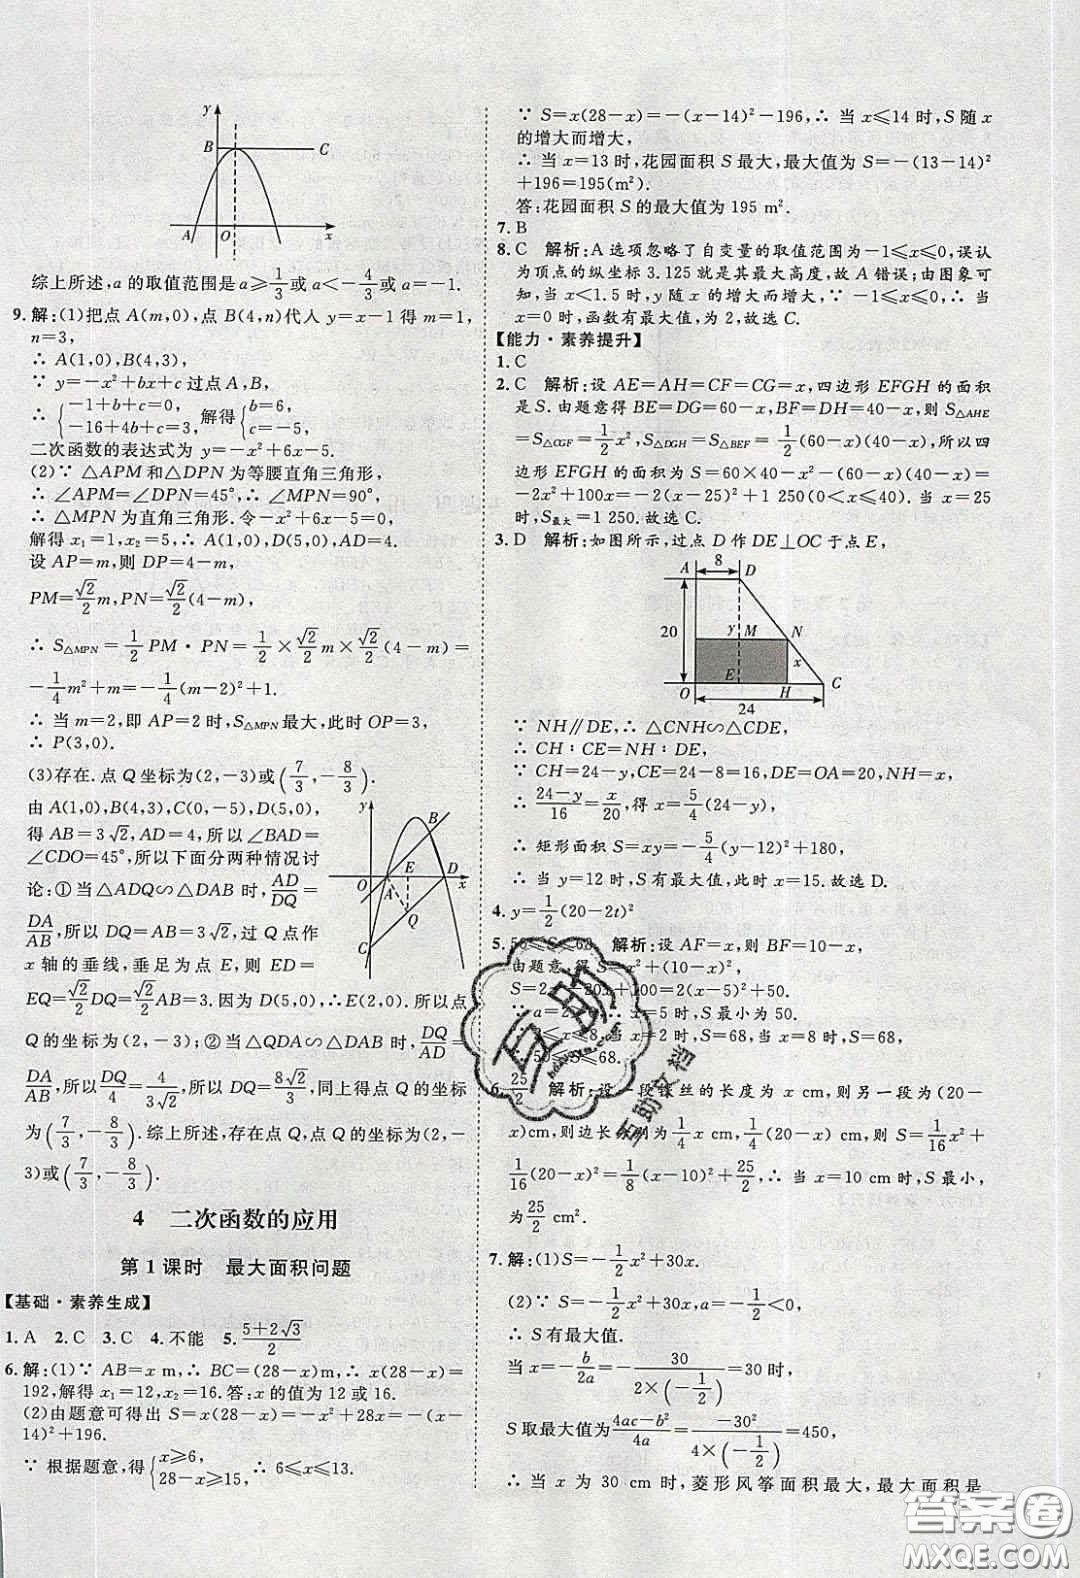 y
B
C
A
O
x
综上所述,a 的取值范围是 a≥1/3或 a<-4/3或 a=-1.
9.解:(1)把点 A(m,0),点 B(4,n)代人 y=x-1 得 m=1,
n=3,
∴ A(1,0),B(4,3),
∵ y=-x²+bx+c 过点 A,B,
∴ {-1+b+c=0, -16+4b+c=3, 解得{b=6, c=-5,
二次函数的表达式为 y=-x²+6x-5.
(2)∵ △APM 和△DPN 为等腰直角三角形,
∴ ∠APM=∠DPN=45°,∴ ∠MPN=90°,
∴ △MPN 为直角三角形.令-x²+6x-5=0,
解得 x₁=1,x₂=5,∴ A(1,0),D(5,0),AD=4.
设 AP=m,则 DP=4-m,
PM=√2/2 m,PN=√2/2(4-m),
∴ S△MPN=1/2 PM·PN=1/2×√2/2 m×√2/2(4-m)=
-1/4m²+m=-1/4(m-2)²+1.
∴ 当 m=2,即 AP=2 时,S△MPN最大,此时 OP=3,
∴ P(3,0).
(3)存在.点 Q 坐标为(2,-3)或(7/3,-8/3).
由 A(1,0),B(4,3),C(0,-5),D(5,0)
得 AB=3√2,AD=4,所以∠BAD=
∠CDO=45°,所以下面分两种情况讨
论:①当△ADQ∽△DAB 时,AD/DQ=
DA/AB,所以 DQ=AB=3√2,过点 Q 作
x 轴的垂线,垂足为点 E,则 ED=
y
B
E
D
O
A
x
Q
C
EQ=√2/2DQ=√2/2AB=3.因为 D(5,0),∴E(2,0).所以点
Q 的坐标为(2,-3);②当△QDA∽△DAB 时,DQ/AD=
DA/AB,所以DQ/4=4/3√2,所以 DQ=8√2/3,同上得点 Q 的坐标
为(7/3,-8/3).综上所述,存在点 Q,点 Q 坐标为(2,-
3)或(7/3,-8/3).
4 二次函数的应用
第 1 课时 最大面积问题
【基础·素养生成】
1.A 2.C 3.C 4.不能 5.5+2√3/2
6.解:(1)∵ AB=x m,∴ BC=(28-x)m,∴ x(28-x)=
192,解得 x₁=12,x₂=16.答:x 的值为 12 或 16.
(2)由题意可得出 S=x(28-x)=-x²+28x=-(x-
14)²+196.
∵ 根据题意,得{x≥6, 28-x≥15, ∴ 6≤x≤13.
∵ S=x(28-x)=-(x-14)²-196,∴ 当 x≤14 时,S 随 x
的增大而增大,
∴ 当 x=13 时,花园面积 S 最大,最大值为 S=-(13-14)²
+196=195(m²).
答:花园面积 S 的最大值为 195 m².
7.B
8.C 解析:A 选项忽略了自变量的取值范围为-1≤x≤0,误认
为顶点的纵坐标 3.125 就是其最大高度,故 A 错误;由图象可
知,当 x<1.5 时,y 随 x 的增大而增大,∵ -1≤x≤0,∴ 当
x=0 时,函数有最大值,为 2,故选 C.
【能力·素养提升】
1.C
2.C 解析:设 AE=AH=CF=CG=x,四边形 EFGH 的面积
是 S.由题意得 BE=DG=60-x,BF=DH=40-x,则 S△AHE
=S△CGF=1/2x²,S△DGH=S△BEF=1/2(60-x)(40-x),所以四
边形 EFGH 的面积为 S=60×40-x²-(60-x)(40-x)=
-2x²+100x=-2(x-25)²+1 250(0<x≤40).当 x=25
时,S最大=1 250.故选 C.
3.D 解析:如图所示,过点 D 作 DE⊥OC 于点 E,
8
A
D
20
y
M
N
x
E
O
H
C
24
∵ NH∥DE,∴ △CNH∽△CDE,
∴ CH∶CE=NH∶DE,
∵ CH=24-y,CE=24-8=16,DE=OA=20,NH=x,
∴ 24-y/16=x/20,得 x=5/4(24-y),
∴ 矩形面积 S=xy=-5/4(y-12)²+180,
∴ 当 y=12 时,S 有最大值,此时 x=15.故选 D.
4.y=1/2(20-2t)²
5.50≤S≤68 解析:设 AF=x,则 BF=10-x,
由题意,得 S=
S=2x²-20x+100=2(x-5)²+50.
∵ a=2>0,∴ x=5 时,S 最小为 50.
≤x≤8,当 x=2 时,S=68,当 x=8 时,S=68,
∴ 50≤S≤68.
6.25/2 解析:设一段铁丝的长度为 x cm,则另一段为(20-
x)cm,则边长分别为1/4x cm,1/4(20-x)cm,则 S=1/16x²+
1/16(20-x)²=1/8(x-10)²+25/2,∴ 当 x=10 cm 时,S 最小,
为25/2 cm².
7.解:(1)S=-1/2x²+30x.
(2)∵ S=-1/2x²+30x,a=-1/2<0,
∴ S 有最大值.
当 x=-b/2a=-30/2×(-1/2)=30 时,
S 取最大值为4ac-b²/4a=-30²/4×(-1/2)=450,
∴ 当 x 为 30 cm 时,菱形风筝面积最大,最大面积是
互助
互助文档
答案圈
MXQE.COM